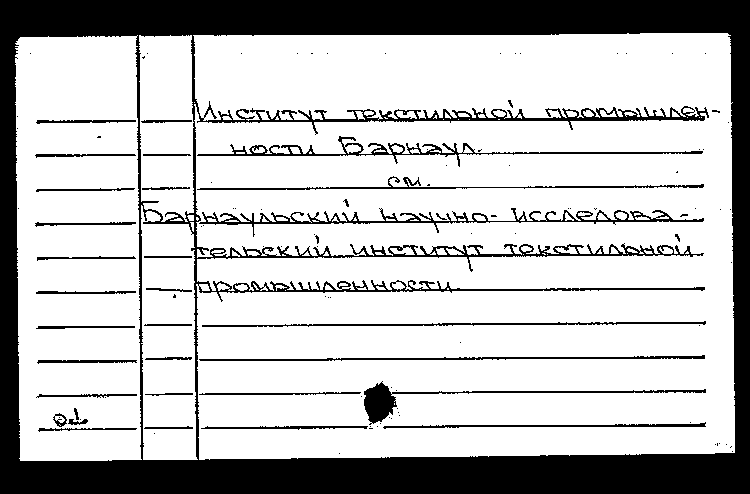 Институт текстильной промышлен-
ности Барнаул.
см.
Барнаульский научно-исследова-
тельский институт текстильной
промышленности